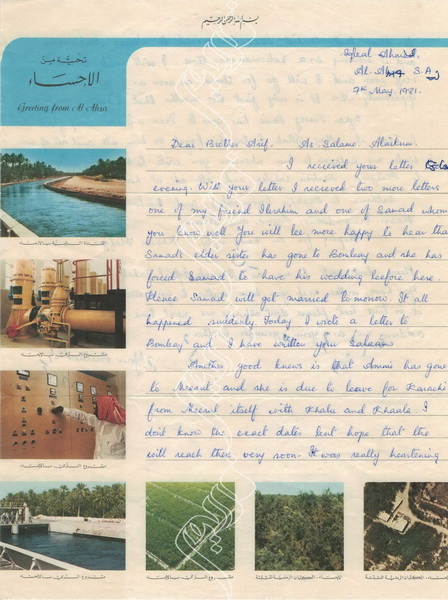 بسم الله الرحمن الرحيم
تحية من
الأحساء
Greeting from Al Ahsa
Iqbal Ahmed.
S.A
9th May. 1981.
Dear Brother Arif. As Salamo Alaikum.
I recieved your letter
evening. With your letter I recieved two more letters
one of my friend Ibrahim and one of Samad whom
you know well. You will bee more happy to hear that
Samad's elder sister has gone to Bombay and she has
forced Samad to have his wedding beefore here.
Hence Samad will get married tomorrow. It all
happened suddenly. Today I wrote a letter to
Bombay and I have written your Salaam.
Another good knews is that Ammi has gone
to Meerut and she is due to leave for Karachi
from Meerut itself with Khalu and Khaala. I
don't know the exact date but hope that the
will reach there very soon. It was really heartening
مشروع الري بالاحساء
مشروع الري بالاحساء
مشروع الري بالاحساء
مشروع الري بالاحساء